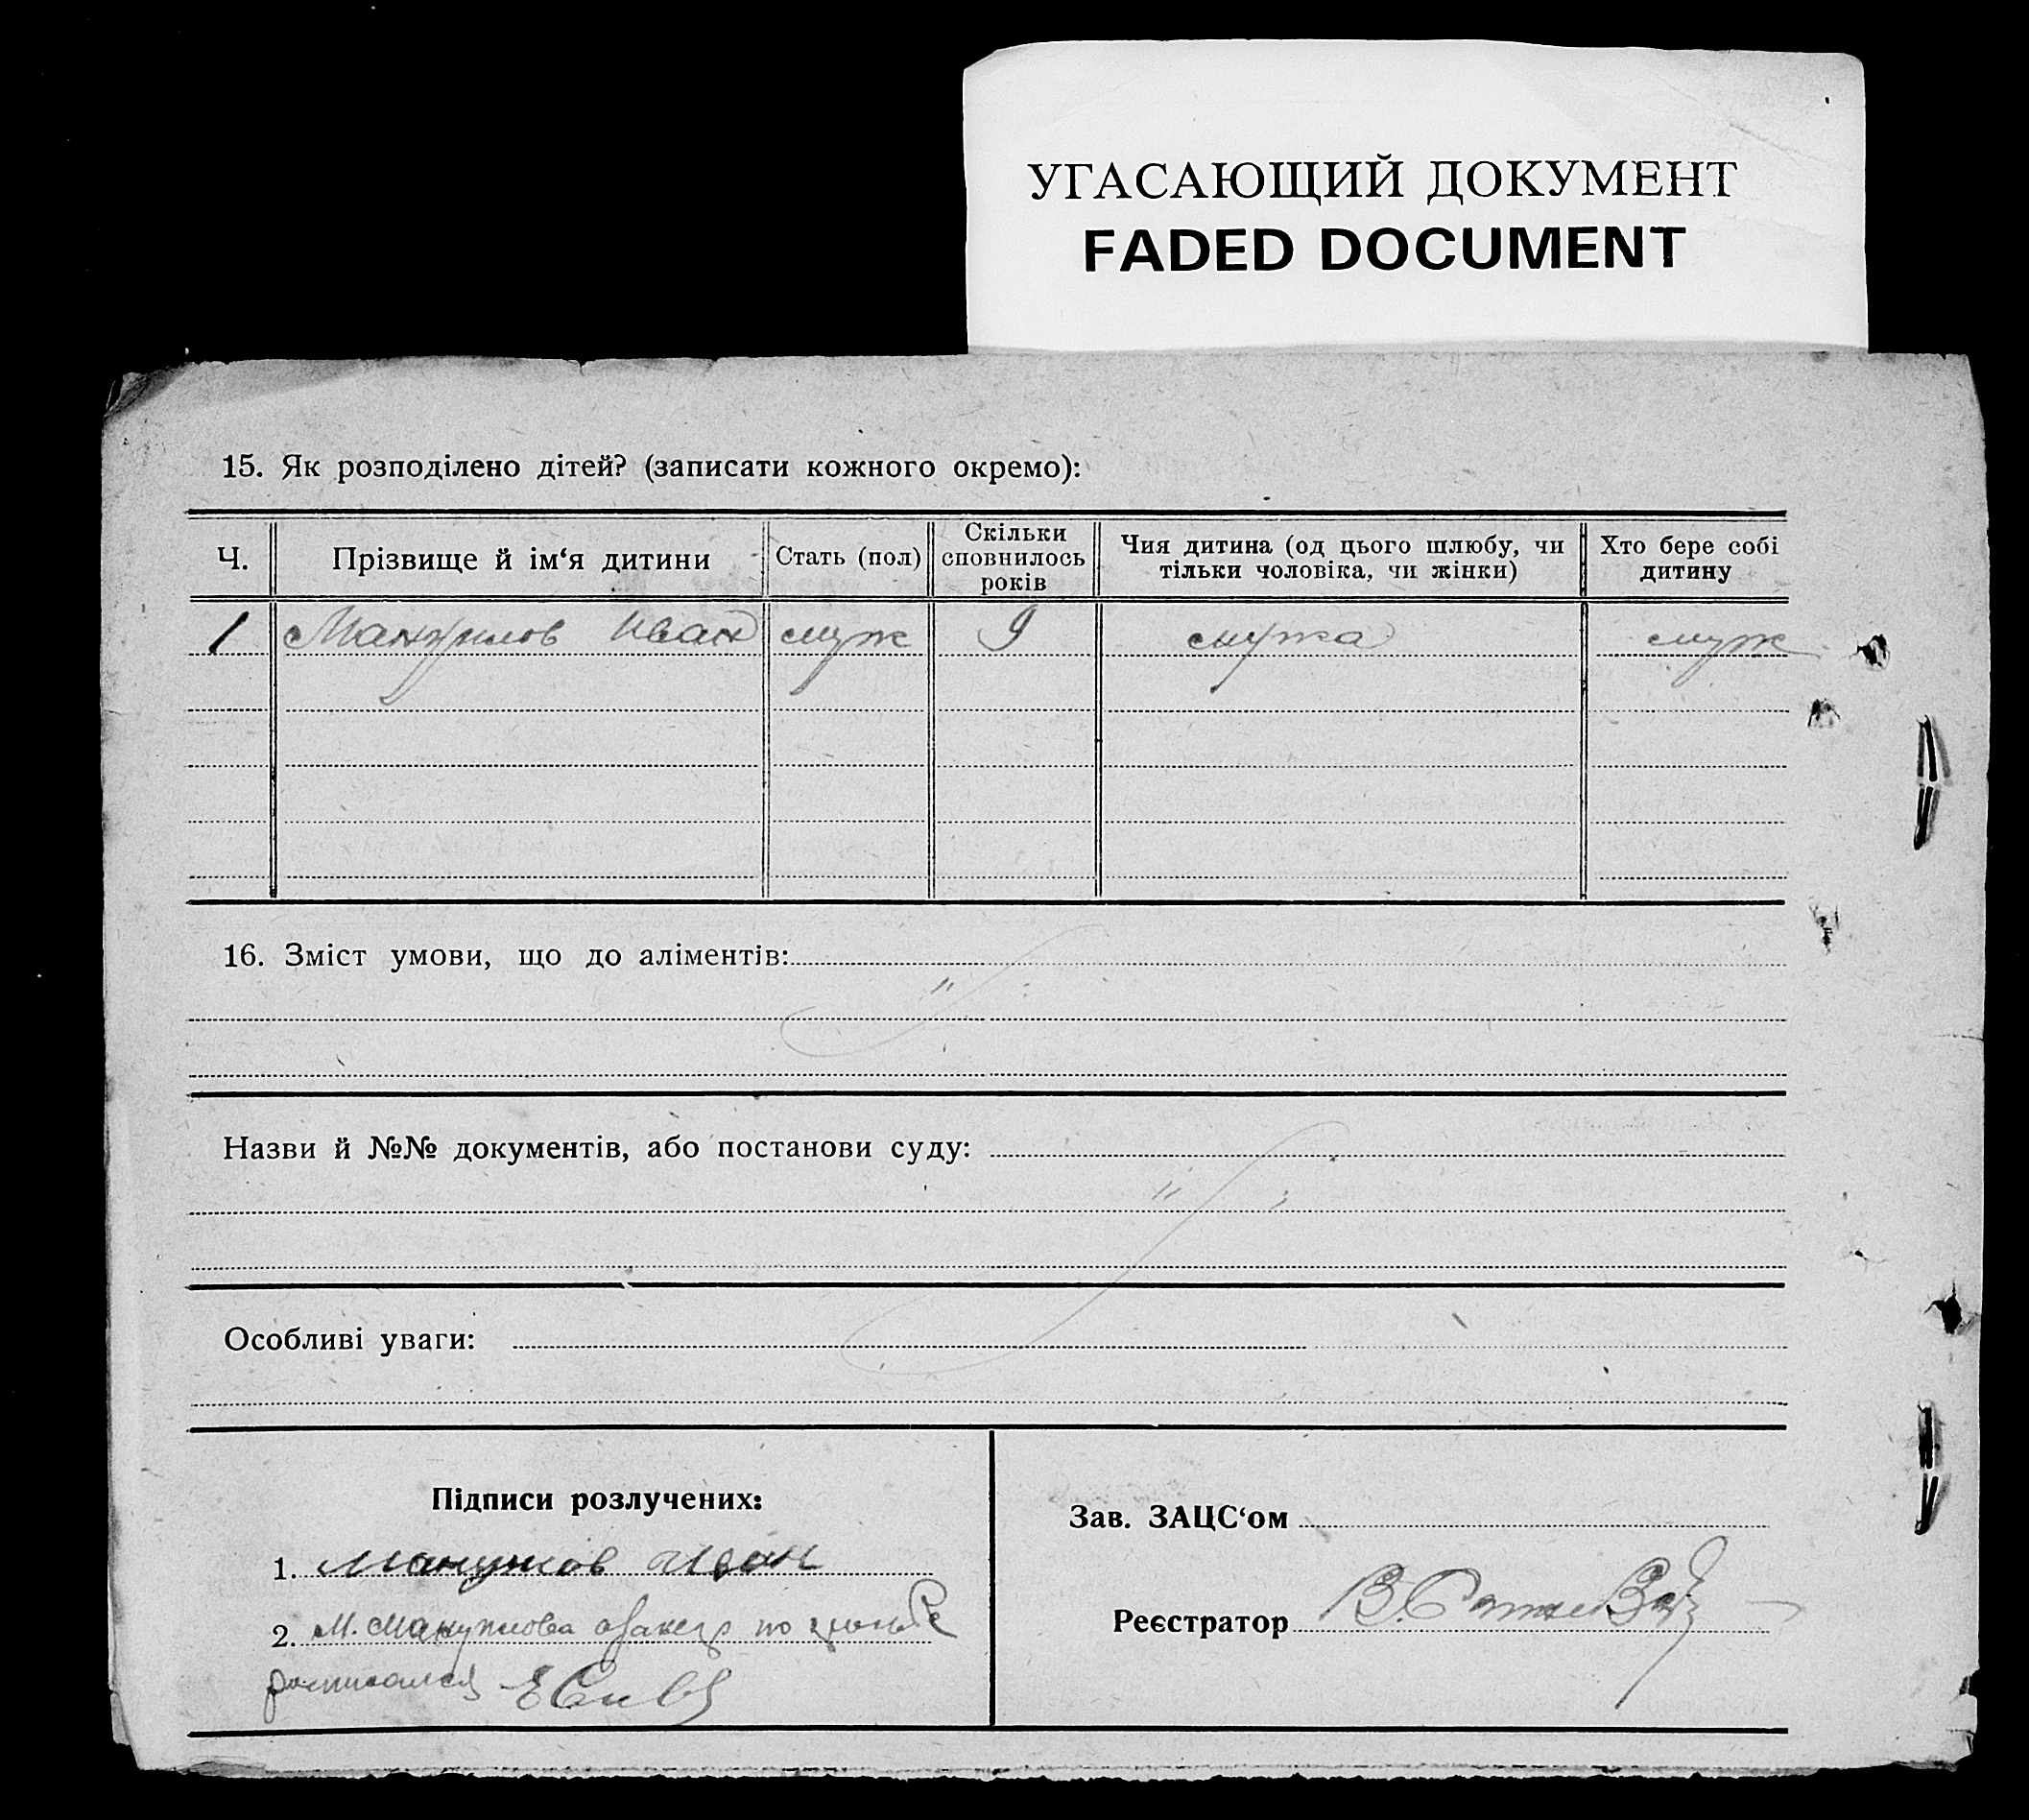 УГАСАЮЩИЙ ДОКУМЕНТ
FADED DOCUMENT
15. Як розподілено дітей? (записати кожного окремо):
Ч. Прізвище й ім‘я дитини Стать (пол) Скільки сповнилось років Чия дитина (од цього шлюбу, чи тільки чоловіка, чи жінки) Хто бере собі дитину
1 Манжулов Иван муж 9 мужа муж
16. Зміст умови, що до аліментів:
Назви й №№ документів, або постанови суду:
Особливі уваги:
Підписи розлучених:
Зав. ЗАЦС‘ом
1. Иван
2. М. по
Реєстратор
расписался